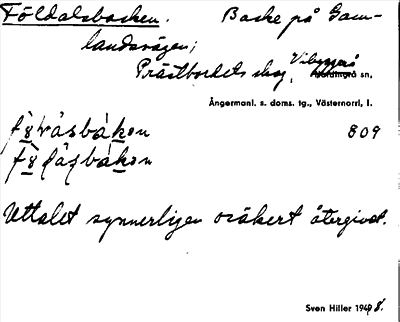 Földalsbacken. Backe på Gam-
landsvägen;
Prästbordets skog, Vibyggerå sn,
Ångermanl. s. doms. tg., Västernorrl, l.
809
Uttalet synnerligen osäkert återgivet.
Sven Hiller 1948.